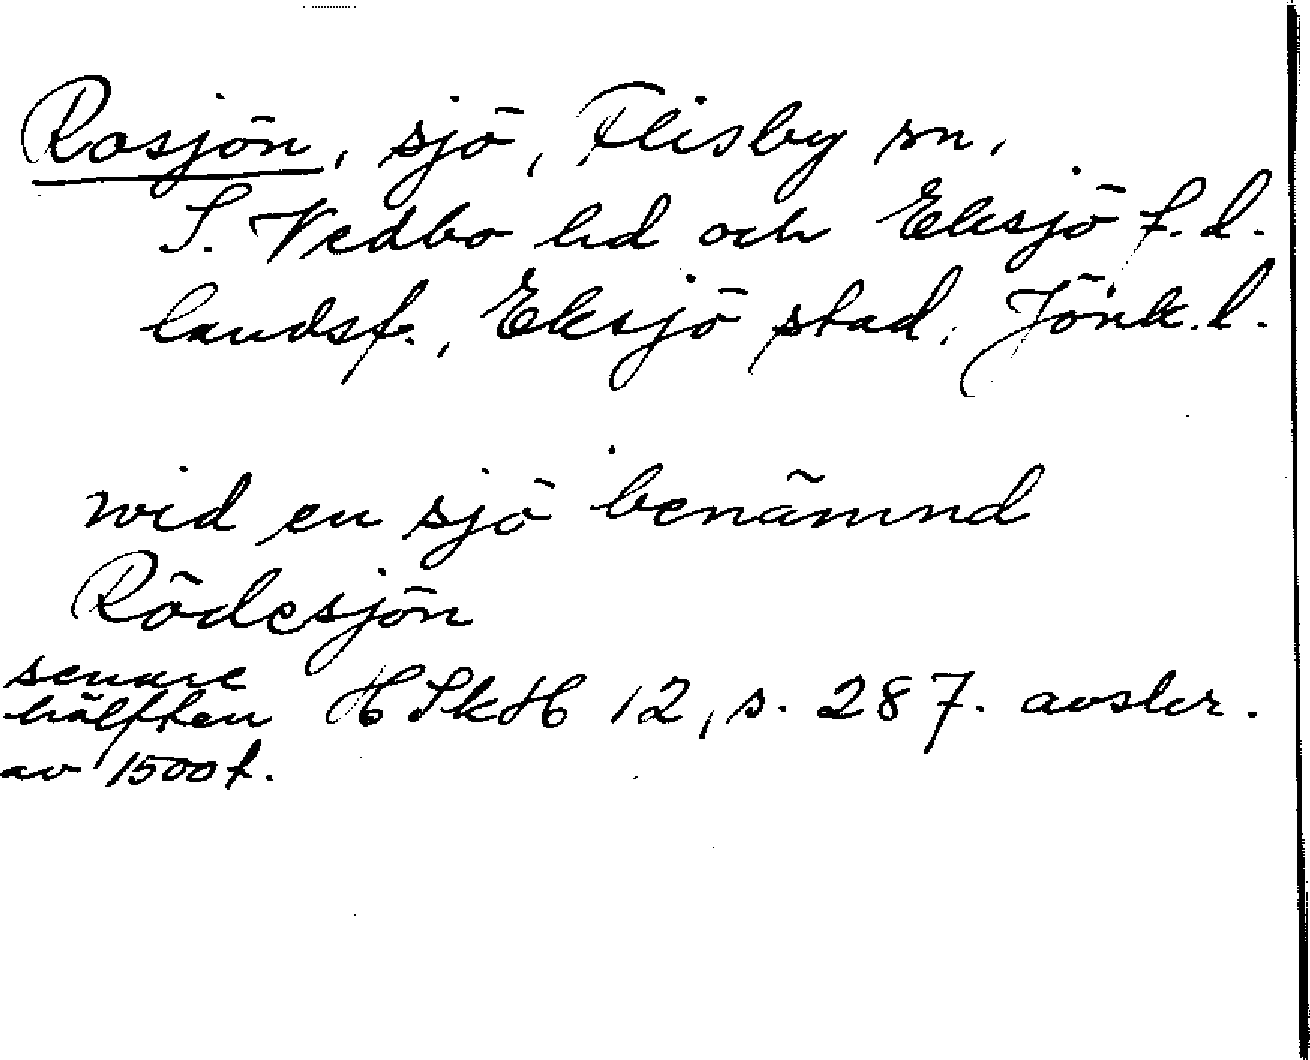 Rosjön, sjö, Flisby sn,
S. Vedbo hd och Eksjö f.d.
landsf., Eksjö stad, Jönk.l.
wid en sjö benämnd
Rödesjön
senare
hälften
av 1500t.
HSkH 12, s. 287. avskr.